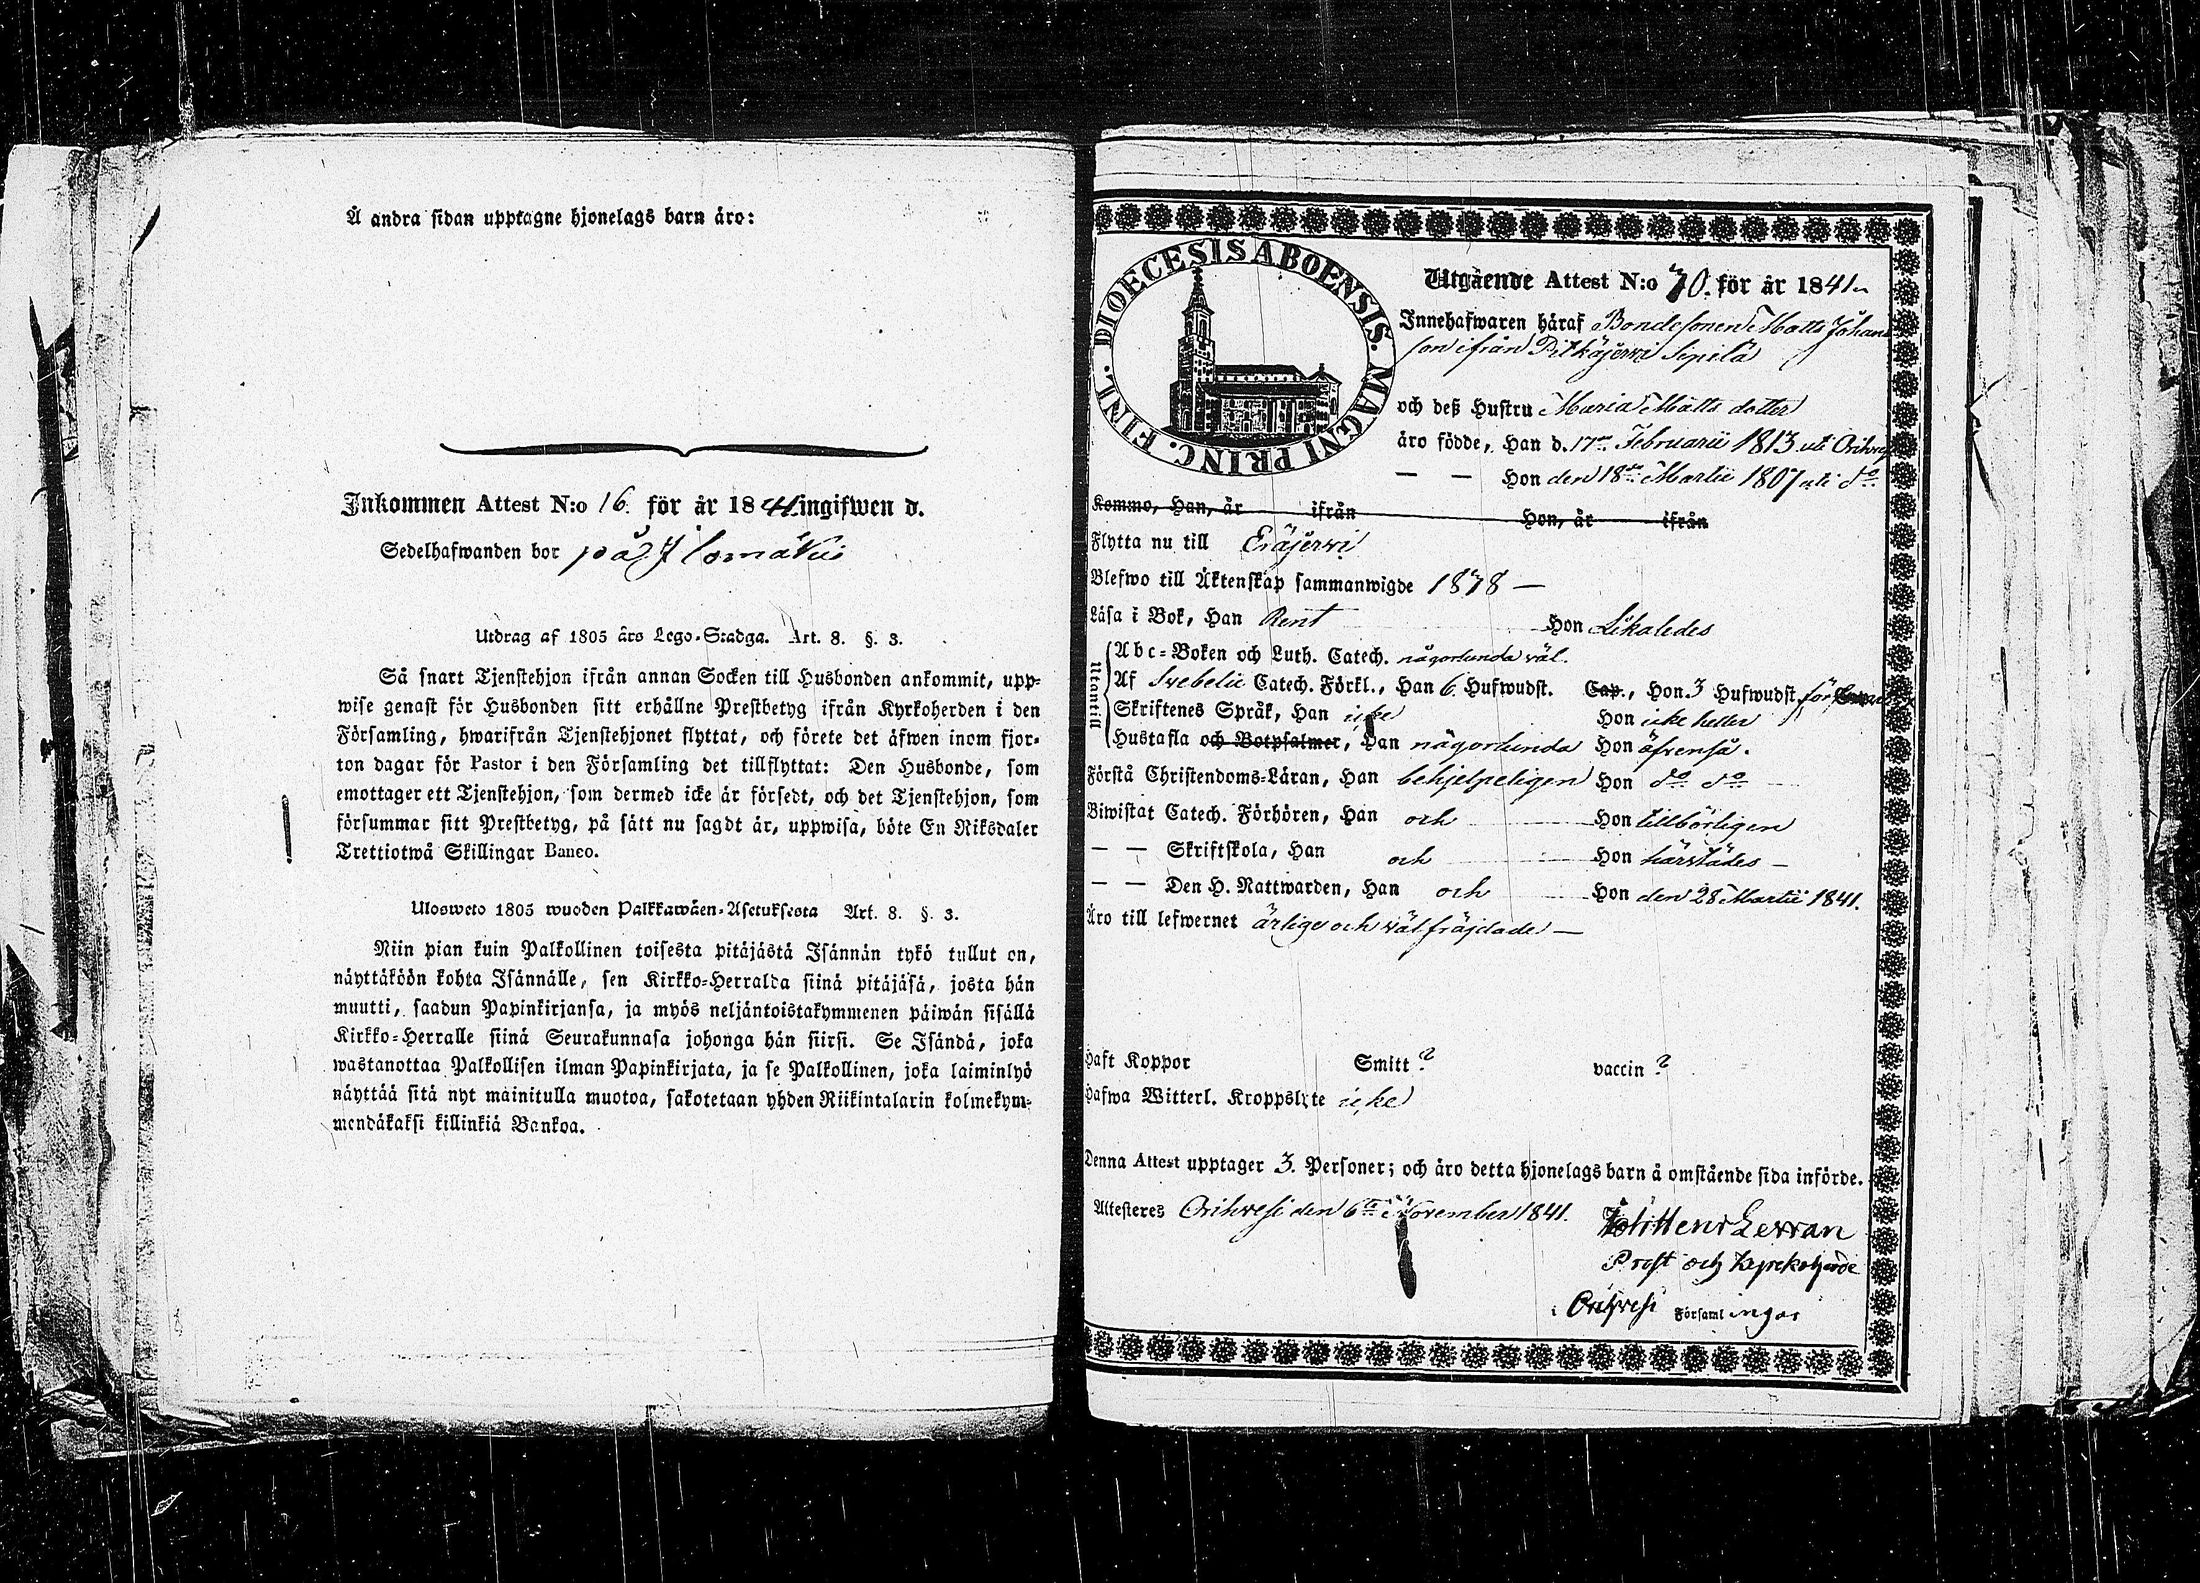 Å andra sidan upptagne hjonelags barn äro:
Inkommen Attest N:o 16. för år 1841 ingifwen d.
Sedelhafwanden bor på Ilomäkii
Utdrag af 1805 års Lego-Stadga. Art. 8. §. 3.
Så snart Tjenstehjon ifrån annan Socken till Husbonden ankommit, upp-
wise genast för Husbonden sitt erhållne Prestbetyg ifrån Kyrkoherden i den
Församling, hwarifrån Tjenstehjonet flyttat, och förete det äfwen inom fjor-
ton dagar för Pastor i den Församling det tillflyttat: Den Husbonde, som
emottager ett Tjenstehjon, som dermed icke är försedt, och det Tjenstehjon, som
försummar sitt Prestbetyg, på sätt nu sagdt är, uppwisa, böte En Riksdaler
Trettiotwå Skillingar Banco.
Ulosweto 1805 wuoden Palkkawäen-Asetuksesta Art. 8. §. 3.
Niin pian kuin Palkollinen toisesta pitäjästä Isännän tykö tullut on,
näyttäköön kohta Isännälle, sen Kirkko-Herralda siinä pitäjäsä, josta hän
muutti, saadun Papinkirjansa, ja myös neljäntoistakymmenen päiwän sisällä
Kirkko-Herralle siinä Seurakunnasa johonga hän siirsi. Se Isändä, joka
wastanottaa Palkollisen ilman Papinkirjata, ja se Palkollinen, joka laiminlyö
näyttää sitä nyt mainitulla muotoa, sakotetaan yhden Riikintalarin kolmekym-
mendäkaksi killinkiä Bankoa.
DIOECESIS ABOENSIS. MAGNI PRINC. FINL.
Utgående Attest N:o 70. för år 1841.
Innehafwaren häraf Bondesonen Matts Johan
son ifrån Pitkäjerwi Sipilä
och deß Hustru Maria Matts dotter
äro födde, Han d. 17de Februarii 1813 uti Orihvesi
— — Hon den 18de Martii 1807 uti do
Komma, Han, är ifrån Hon, är ifrån
Flytta nu till Eräjerwi
Blefwo till Äktenskap sammanwigde 1838 —
Läsa i Bok, Han Rent Hon Likaledes
Utantill
Abc-Boken och Luth. Catech. någorlunda väl.
Af Svebelii Catech. Förkl., Han 6 Hufwudst. Cap., Hon 3 Hufwudst.
Skriftenes Språk, Han icke Hon icke heller
Hustafla och Botpsalmer, Han någorlunda Hon äfvenså.
Förstå Christendoms-Läran, Han behjelpeligen Hon do do
Biwistat Catech. Förhören, Han och Hon tillbörligen
— — Skriftskola, Han och Hon härstädes —
— — Den H. Nattwarden, Han och Hon den 28 Martii 1841.
Äro till lefwernet ärlige och välfräjdade —
Haft Koppor Smitt? vaccin?
Hafwa Witterl. Kroppslyte icke
Denna Attest upptager 3. Personer; och äro detta hjonelags barn å omstående sida införde.
Attesteres Orihvesi den 6te November 1841.
Joh: Henr Levvan
Prost och Kyrkoherde
i Orihvesi Församlingar